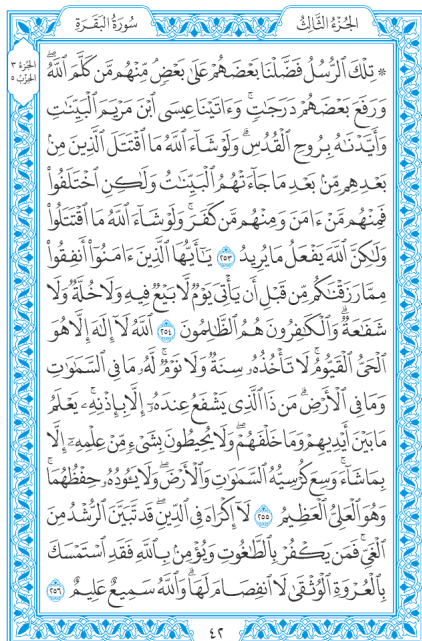 الجُزْءُ الثَّالِثُ
سُورَةُ البَقَرَةِ
الجُزْءُ ٣
الحِزْبُ ٥
۞ تِلْكَ ٱلرُّسُلُ فَضَّلْنَا بَعْضَهُمْ عَلَىٰ بَعْضٍۘ مِّنْهُم مَّن كَلَّمَ ٱللَّهُۖ
وَرَفَعَ بَعْضَهُمْ دَرَجَٰتٍۚ وَءَاتَيْنَا عِيسَى ٱبْنَ مَرْيَمَ ٱلْبَيِّنَٰتِ
وَأَيَّدْنَٰهُ بِرُوحِ ٱلْقُدُسِۗ وَلَوْ شَآءَ ٱللَّهُ مَا ٱقْتَتَلَ ٱلَّذِينَ مِنۢ
بَعْدِهِم مِّنۢ بَعْدِ مَا جَآءَتْهُمُ ٱلْبَيِّنَٰتُ وَلَٰكِنِ ٱخْتَلَفُوا۟
فَمِنْهُم مَّنْ ءَامَنَ وَمِنْهُم مَّن كَفَرَۚ وَلَوْ شَآءَ ٱللَّهُ مَا ٱقْتَتَلُوا۟
وَلَٰكِنَّ ٱللَّهَ يَفْعَلُ مَا يُرِيدُ ٢٥٣ يَٰٓأَيُّهَا ٱلَّذِينَ ءَامَنُوٓا۟ أَنفِقُوا۟
مِمَّا رَزَقْنَٰكُم مِّن قَبْلِ أَن يَأْتِىَ يَوْمٌ لَّا بَيْعٌ فِيهِ وَلَا خُلَّةٌ وَلَا
شَفَٰعَةٌۗ وَٱلْكَٰفِرُونَ هُمُ ٱلظَّٰلِمُونَ ٢٥٤ ٱللَّهُ لَآ إِلَٰهَ إِلَّا هُوَ
ٱلْحَىُّ ٱلْقَيُّومُۚ لَا تَأْخُذُهُۥ سِنَةٌ وَلَا نَوْمٌۚ لَّهُۥ مَا فِى ٱلسَّمَٰوَٰتِ
وَمَا فِى ٱلْأَرْضِۗ مَن ذَا ٱلَّذِى يَشْفَعُ عِندَهُۥٓ إِلَّا بِإِذْنِهِۦۚ يَعْلَمُ
مَا بَيْنَ أَيْدِيهِمْ وَمَا خَلْفَهُمْۖ وَلَا يُحِيطُونَ بِشَىْءٍ مِّنْ عِلْمِهِۦٓ إِلَّا
بِمَا شَآءَۚ وَسِعَ كُرْسِيُّهُ ٱلسَّمَٰوَٰتِ وَٱلْأَرْضَۖ وَلَا يَـُٔودُهُۥ حِفْظُهُمَاۚ
وَهُوَ ٱلْعَلِىُّ ٱلْعَظِيمُ ٢٥٥ لَآ إِكْرَاهَ فِى ٱلدِّينِۖ قَد تَّبَيَّنَ ٱلرُّشْدُ مِنَ
ٱلْغَىِّۚ فَمَن يَكْفُرْ بِٱلطَّٰغُوتِ وَيُؤْمِنۢ بِٱللَّهِ فَقَدِ ٱسْتَمْسَكَ
بِٱلْعُرْوَةِ ٱلْوُثْقَىٰ لَا ٱنفِصَامَ لَهَاۗ وَٱللَّهُ سَمِيعٌ عَلِيمٌ ٢٥٦
٤٢